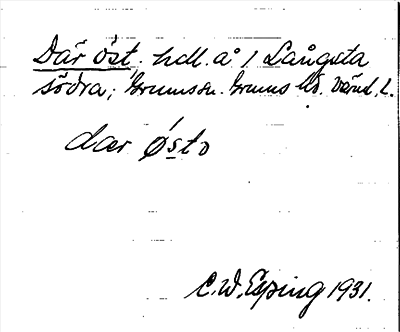 Där öst. hdl. å 1 Långsta
södra; Grums sn. Grums hd. Värml. l.
dær østo
C.W. Esping 1931.